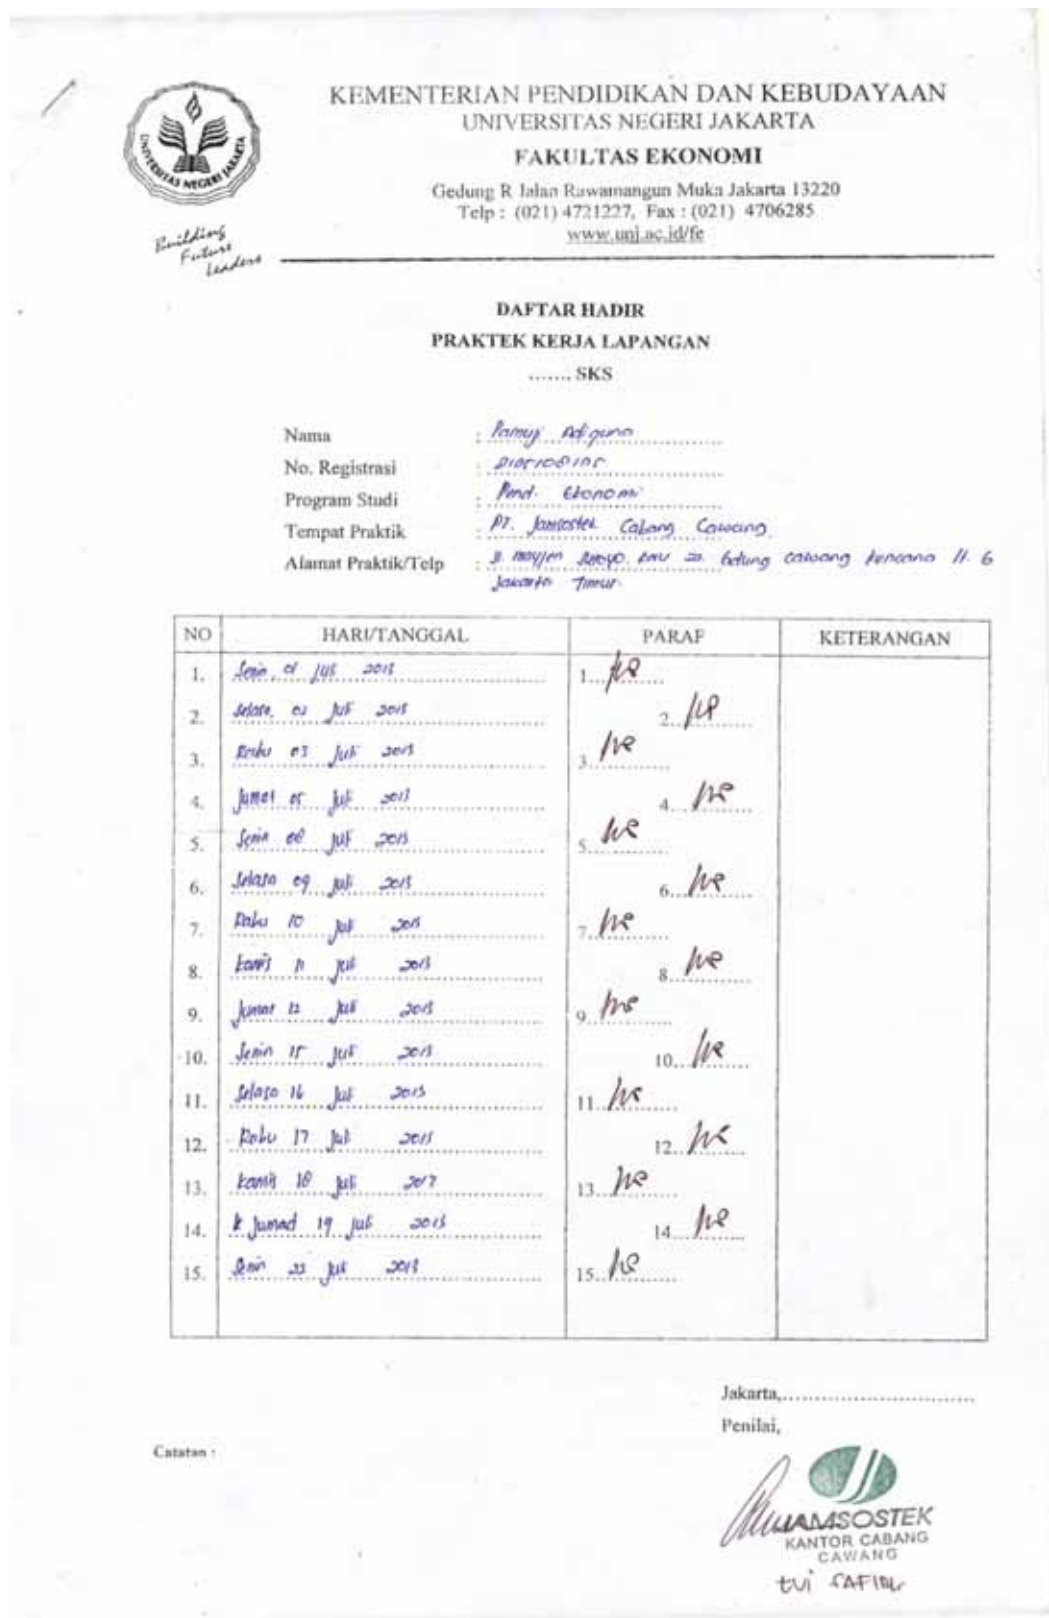 KEMENTERIAN PENDIDIKAN DAN KEBUDAYAAN
UNIVERSITAS NEGERI JAKARTA
FAKULTAS EKONOMI
Gedung R Jalan Rawamangun Muka Jakarta 13220
Telp : (021) 4721227, Fax : (021) 4706285
www.unj.ac.id/fe
UNIVERSITAS NEGERI JAKARTA
Building
Future
Leaders
DAFTAR HADIR
PRAKTEK KERJA LAPANGAN
......, SKS
Nama : Pamuji Adiguna
No. Registrasi :
Program Studi : Pend. Ekonomi
Tempat Praktik : PT. Jamsostek Cabang Cawang
Alamat Praktik/Telp : Jl. mayjen Gedung cawang kencana lt. 6
Jakarta Timur.
NO HARI/TANGGAL PARAF KETERANGAN
1. Senin, 01 Juli 2013 1.
2. Selasa, 02 Juli 2013 2.
3. Rabu 03 Juli 2013 3.
4. Jumat 05 Juli 2013 4.
5. Senin 08 Juli 2013 5.
6. Selasa 09 Juli 2013 6.
7. Rabu 10 Juli 2013 7.
8. Kamis 11 Juli 2013 8.
9. Jumat 12 Juli 2013 9.
10. Senin 15 Juli 2013 10.
11. Selasa 16 Juli 2013 11.
12. Rabu 17 Juli 2013 12.
13. Kamis 18 Juli 2013 13.
14. Jumad 19 Juli 2013 14.
15. Senin 22 Juli 2013 15.
Jakarta,............................
Penilai,
Catatan :
JAMSOSTEK
KANTOR CABANG
CAWANG